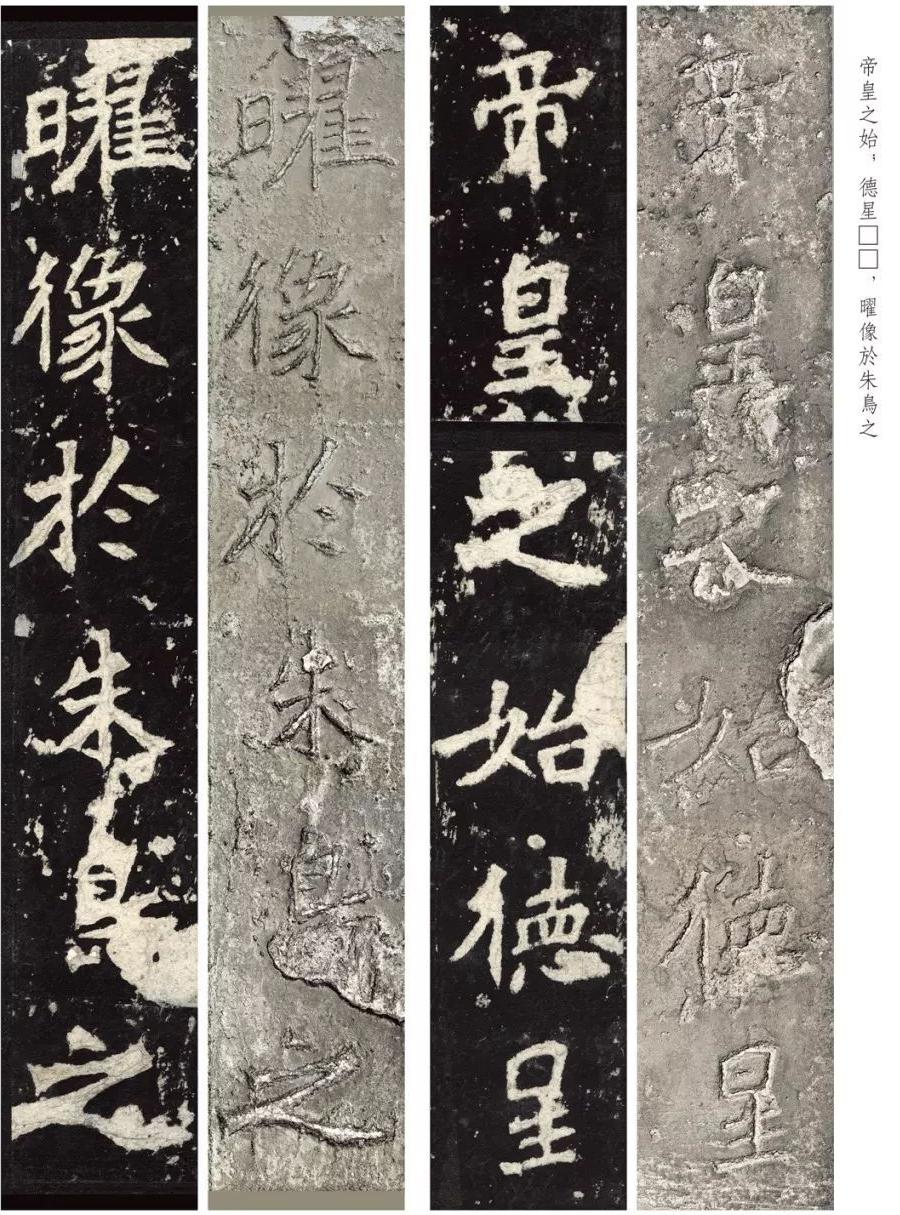 帝皇之始，德星□□，曜像於朱鳥之
帝皇之始德星
帝皇之始德星
曜像於朱鳥之
曜像於朱鳥之